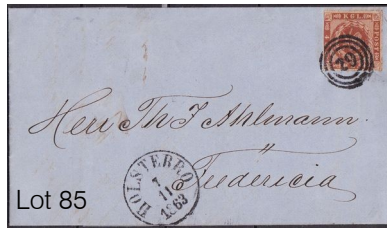 KGL
29
Herr Th J Ahlmann.
"
Fredericia
HOLSTEBRO
7
11
1863
Lot 85